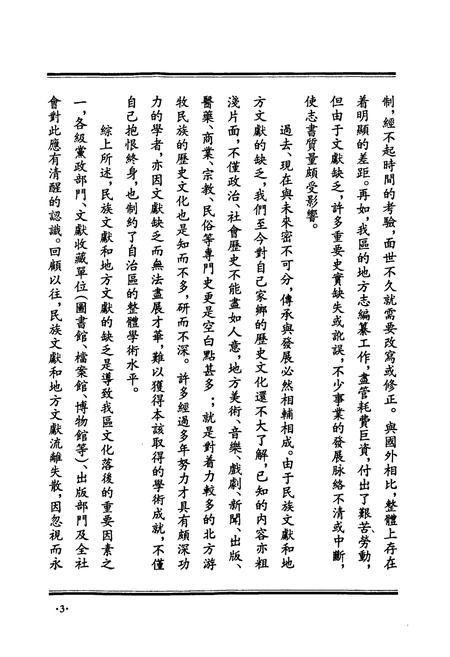 制，經不起時間的考驗，面世不久就需要改寫或修正。與國外相比，整體上存在
着明顯的差距。再如，我區的地方志編纂工作，盡管耗費巨資，付出了艱苦勞動，
但由于文獻缺乏，許多重要史實缺失或訛誤，不少事業的發展脉絡不清或中斷，
使志書質量頗受影響。
過去、現在與未來密不可分，傳承與發展必然相輔相成。由于民族文獻和地
方文獻的缺乏，我們至今對自己家鄉的歷史文化還不大了解，已知的内容亦粗
淺片面，不僅政治、社會歷史不能盡如人意，地方美術、音樂、戲劇、新聞、出版、
醫藥、商業、宗教、民俗等專門史更是空白點甚多；就是對着力較多的北方游
牧民族的歷史文化也是知而不多，研而不深。許多經過多年努力才具有頗深功
力的學者，亦因文獻缺乏而無法盡展才華，難以獲得本該取得的學術成就，不僅
自己抱恨終身，也制約了自治區的整體學術水平。
綜上所述，民族文獻和地方文獻的缺乏是導致我區文化落後的重要因素之
一，各級黨政部門、文獻收藏單位(圖書館、檔案館、博物館等)、出版部門及全社
會對此應有清醒的認識。回顧以往，民族文獻和地方文獻流離失散，因忽視而永
·3·